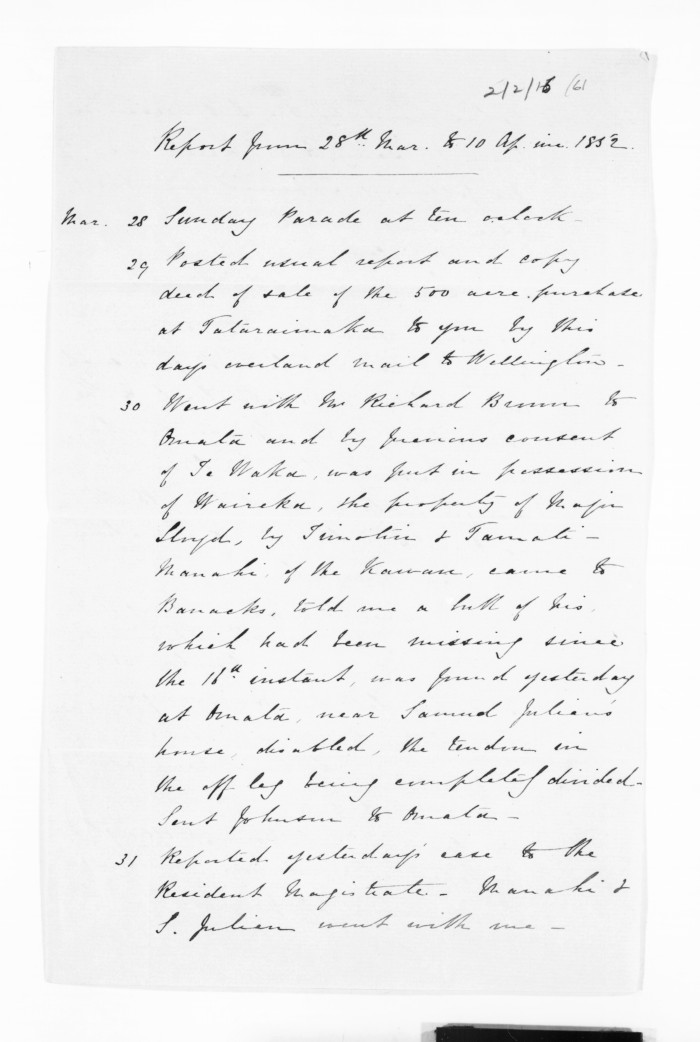 2/2/16 /61
Report from 28th Mar. to 10 Ap. inc. 1852.
Mar. 28 Sunday Parade at ten oclock -
29 Posted usual report and copy
deed of sale of the 500 acre purchase
at Tataraimaka to you by this
days overland mail to Wellington -
30 Went with Mr Richard Brown to
Omata and by previous consent
of Te Waka, was put in possession
of Waireka, the property of Major
Lloyd, by Timotiu & Tamati -
Manahi, of the Kawau, came to
Barracks, told me a bull of his,
which had been missing since
the 18th instant, was found yesterday
at Omata, near Samuel Julian's
house, disabled, the tendon in
the off leg being completely divided -
Sent Johnson to Omata -
31 Reported yesterday's case to the
Resident Magistrate - Manahi &
S. Julian went with me -